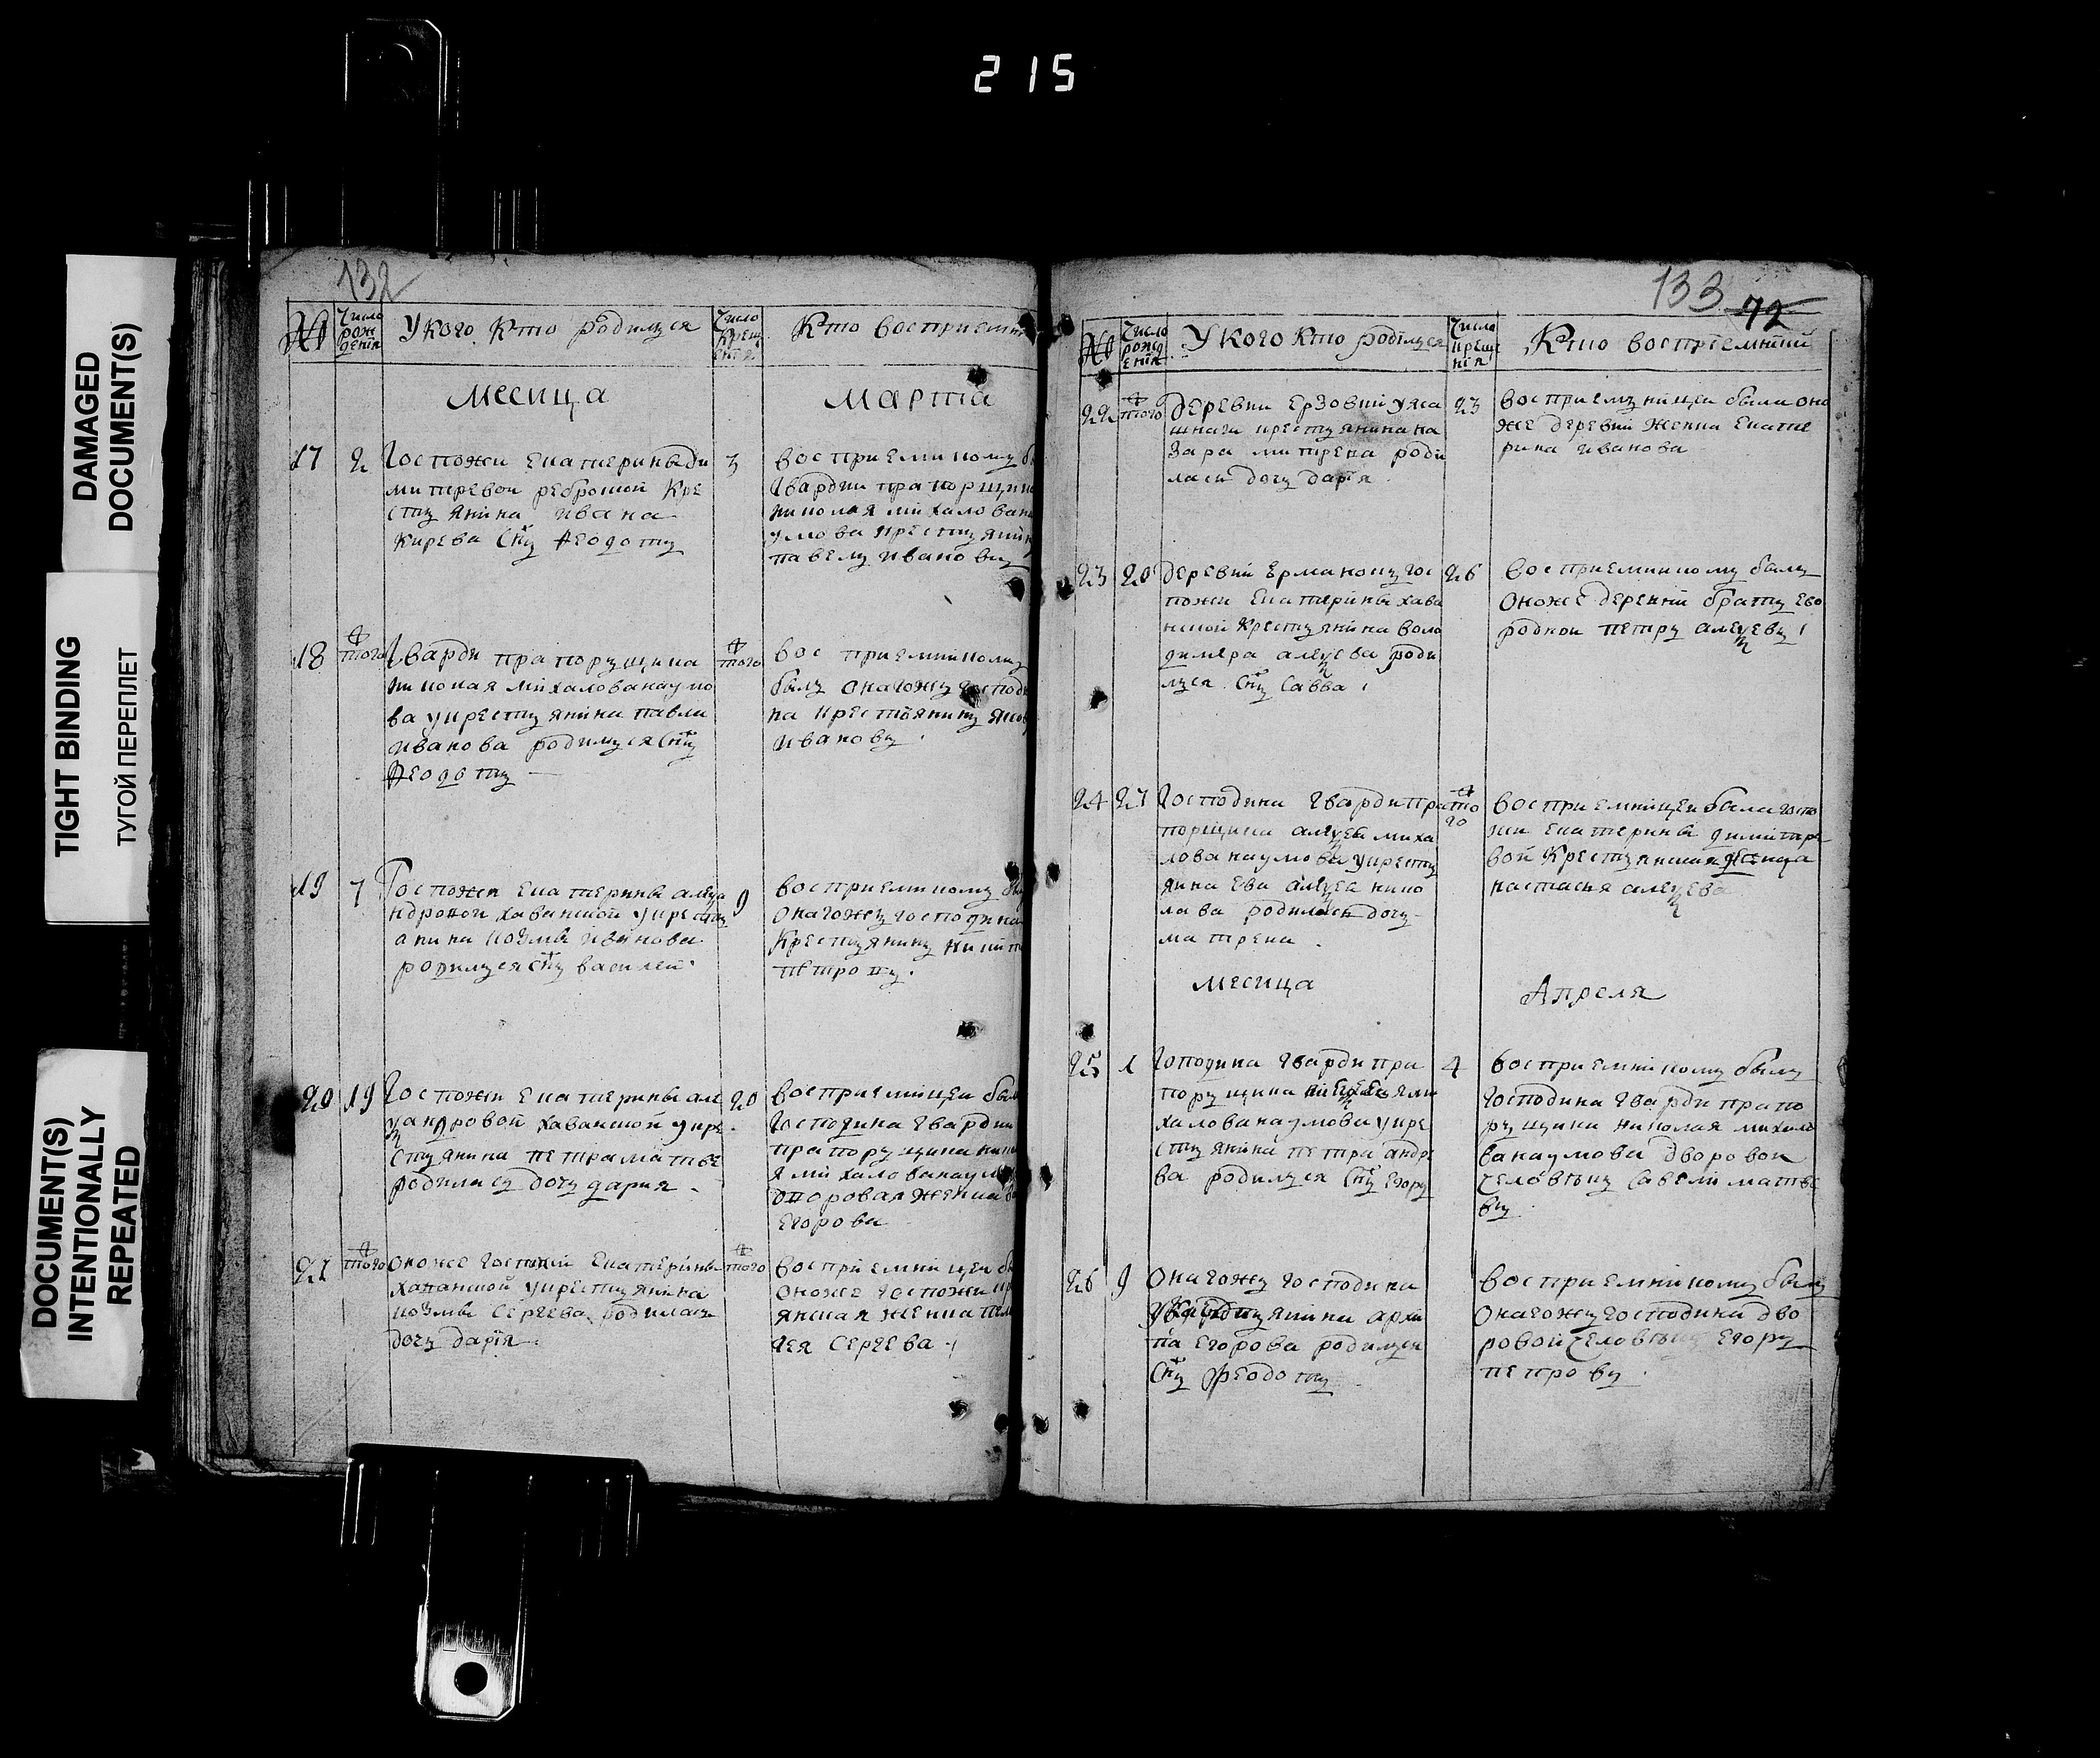 215
DAMAGED
DOCUMENT(S)
TIGHT BINDING
ТУГОЙ ПЕРЕПЛЕТ
DOCUMENT(S)
INTENTIONALLY
REPEATED
132
№
Число
рож
дения
У кого Кто родился
Число
Крещ
ения
Кто восприемн
месяца
марта
17
2
Госпожи Екатерины ди
митревой ребровой Кре
стьянина ивана
Кирева Снъ Ѳеодотъ
3
восприемникомъ б
Гвардии прапорщика
николая михалована
умова крестьянин
павелъ ивановъ
18
того
Гварди прапоръщика
николая михалованаумо
ва укрестьянина павла
иванова родилъся Снъ
Ѳеодотъ
того
вос приемникомъ
былъ онагожъ господи
на крестьянинъ яков
ивановъ
19
7
Госпожи Екатерины алеѯа
ндровой хаванской укрестъ
анина козмы иванова
родилъся Снъ василей
9
восприемникомъ бы
онагожъ господина
Крестьянинъ никит
петровъ
20
19
Госпожи Екатерины але
ѯандровой хаванской укре
стьянина петра матве
родиласъ дочъ дария
20
восприемницеи был
Господина Гвардии
прапоръщика нико
я михалованаумо
дворовая женка
Егорова
21
того
оноже госпожи Екатерины
хаванской укрестьянина
козмы Сергеева родиласъ
дочъ дария
того
восприемницеи бы
оноже госпожи кр
янская женка пел
гея Сергеева
133
72
№
Число
рожд
ения
У кого Кто родился
Число
креще
ния
Кто восприемникъ
22
того
деревни Ерзовки уяса
шнаги крестьянина на
зара митрева роди
ласи дочъ дария
23
восприемъницеи была оно
же деревни женка Екате
рина иванова
23
20
деревни Ермаконцъ гос
пожи Екатерины хава
нской крестьянина воло
димера алеѯева роди
лъся Снъ Савва
26
восприемникомъ былъ
оноже деревни братъ Ево
родной петръ алеѯевъ
24
27
Господина Гвардипра
порщика алеѯея миха
лованаумова укрестъ
янина Ева алеѯея нико
лава родиласи дочъ
матрена
того
восприемницеи была госпо
жи Екатерины димитре
вой Крестьянская женка
настасья алеѯева
месяца
Апреля
25
1
Гоподина гвардипра
поръщика алеѯея ми
халованаумова укре
стьянина петра андре
ва родилъся Снъ Егоръ
4
восприемникомъ былъ
господина гвардипрапо
ръщика николая михало
ванаумова дворовой
человѣкъ Савели матве
въ
26
9
Онагожъ господина
крестьянина архи
па Егорова родилъся
Снъ Ѳеодотъ
восприемникомъ былъ
онагожъ господина дво
ровой человѣкъ Егоръ
петровъ